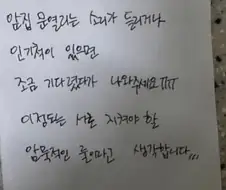 앞집 문열리는 소리가 들리거나
인기척이 있으면
조금 기다렸다가 나와주세요 ㅠㅠ
이정도는 서로 지켜야 할
암묵적인 룰이라고 생각합니다,,,